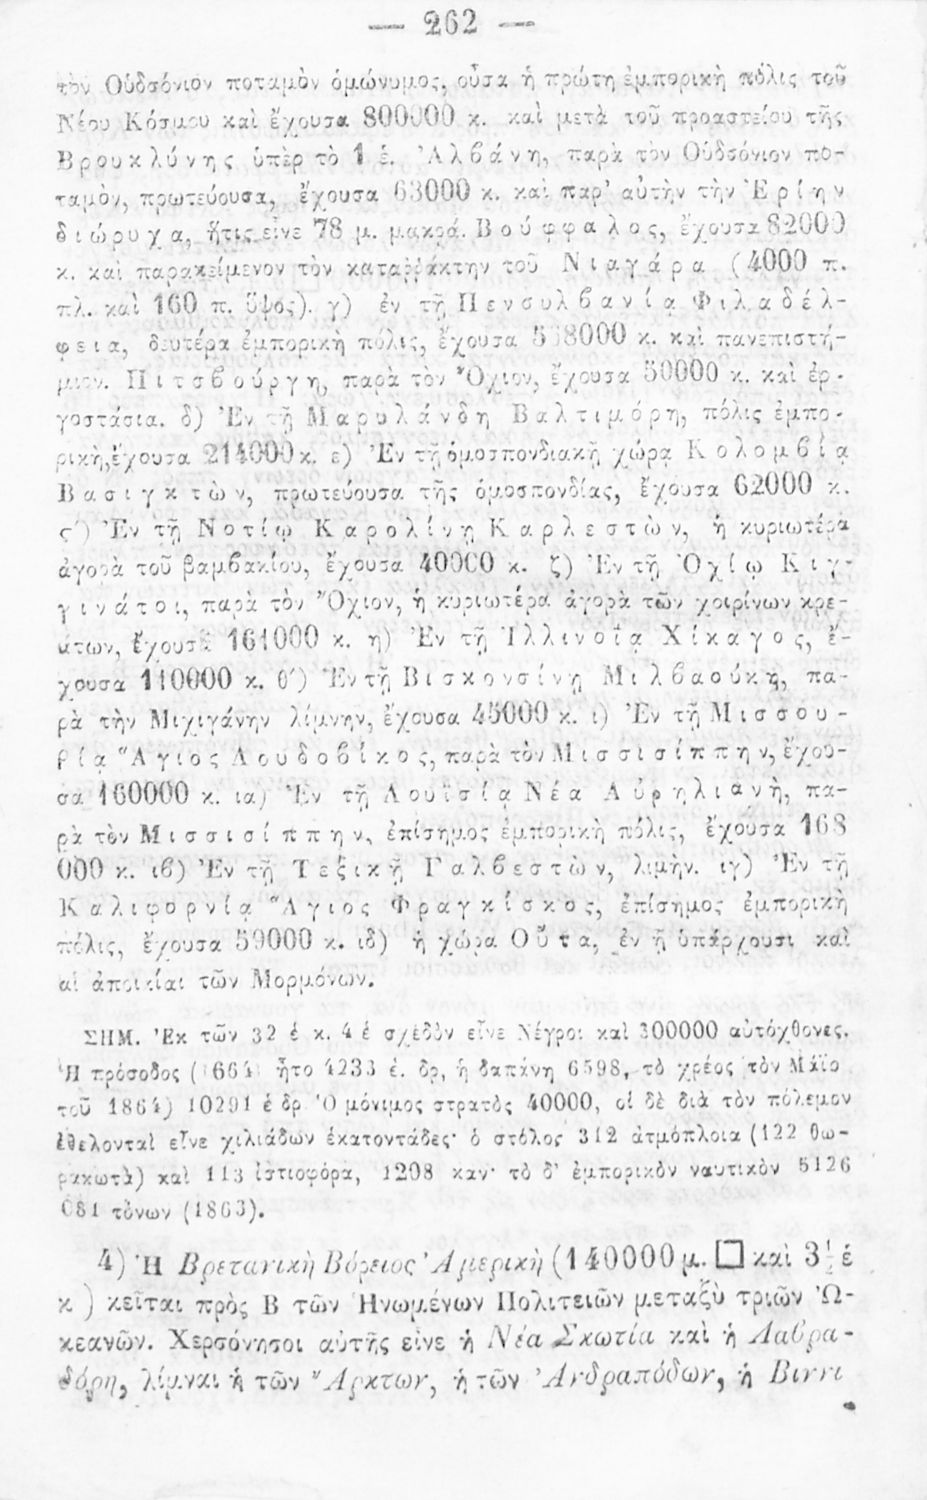 — 262 —
τὸν Οὑδσόνιον ποταμὸν ὁμώνυμος, οὖσα ἡ πρώτη ἐμπορικὴ πόλις τοῦ
Νέου Κόσμου καὶ ἔχουσα 800000 κ. καὶ μετὰ τοῦ προαστείου τῆς
Βρουκλύνης ὑπὲρ τὸ 1 ἑ. Ἀλβάνη, παρὰ τὸν Οὑδσόνιον πο-
ταμὸν, πρωτεύουσα, ἔχουσα 63000 κ. καὶ παρ' αὐτὴν τὴν Ἐρίην
διώρυχα, ἥτις εἶνε 78 μ. μακρά. Βούφφαλος, ἔχουσα 82000
κ. καὶ παρακείμενον τὸν καταῤῥάκτην τοῦ Νιαγάρα (4000 π.
πλ. καὶ 160 π. ὕψος). γ) ἐν τῇ Πενσυλβανίᾳ Φιλαδέλ-
φεια, δευτέρα ἐμπορικὴ πόλις, ἔχουσα κ. καὶ πανεπιστή-
μιον. Πιτσβούργη, παρὰ τὸν Ὄχιον, ἔχουσα 50000 κ. καὶ ἐρ-
γοστάσια. δ) Ἐν τῇ Μαρυλάνδῃ Βαλτιμόρη, πόλις ἐμπο-
ρικὴ, ἔχουσα 214000 κ. ε) Ἐν τῇ ὁμοσπονδιακῇ χώρᾳ Κολομβίᾳ
Βασιγκτὼν, πρωτεύουσα τῆς ὁμοσπονδίας, ἔχουσα 62000 κ.
ς') Ἐν τῇ Νοτίῳ Καρολίνῃ Καρλεστὼν, ἡ κυριωτέρα
ἀγορὰ τοῦ βαμβακίου, ἔχουσα 40000 κ. ζ) Ἐν τῇ Ὀχίῳ Κιγ-
γινάτοι, παρὰ τὸν Ὄχιον, ἡ κυριωτέρα ἀγορὰ τῶν χοιρίνων κρε-
άτων, ἔχουσα 161000 κ. η) Ἐν τῇ Ἰλλινοΐᾳ Χίκαγος, ἔ-
χουσα 110000 κ. θ') Ἐν τῇ Βισκονσίνῃ Μιλβαούκη, πα-
ρὰ τὴν Μιχιγάνην λίμνην, ἔχουσα 45000 κ. ι) Ἐν τῇ Μισσου-
ρίᾳ Ἅγιος Λουδοβίκος, παρὰ τὸν Μισσισίππην, ἔχου-
σα 160000 κ. ια) Ἐν τῇ Λουϊσίᾳ Νέα Αὐρηλιανὴ, πα-
ρὰ τὸν Μισσισίππην, ἐπίσημος ἐμπορικὴ πόλις, ἔχουσα 168
000 κ. ιβ) Ἐν τῇ Τεξικῇ Γαλβεστὼν, λιμήν. ιγ) Ἐν τῇ
Καλιφορνίᾳ Ἅγιος Φραγκίσκος, ἐπίσημος ἐμπορικὴ
πόλις, ἔχουσα 59000 κ. ιδ) ἡ χώρα Οὕτα, ἐν ᾗ ὑπάρχουσι καὶ
αἱ ἀποικίαι τῶν Μορμόνων.
ΣΗΜ. Ἐκ τῶν 32 ἑ κ. 4 ἑ σχεδὸν εἶνε Νέγροι καὶ 300000 αὐτόχθονες.
Ἡ πρόσοδος ἦτο 4233 ἑ. δρ, ἡ δαπάνη 6598, τὸ χρέος τὸν Μάϊο
τοῦ 1864) 10291 ἑ δρ Ὁ μόνιμος στρατὸς 40000, οἱ δὲ διὰ τὸν πόλεμον
ἐθελονταὶ εἶνε χιλιάδων ἑκατοντάδες· ὁ στόλος 312 ἀτμόπλοια (122 θω-
ρακωτὰ) καὶ 113 ἱστιοφόρα, 1208 καν· τὸ δ' ἐμπορικὸν ναυτικὸν 5126
081 τόνων (1863).
4) Ἡ Βρετανικὴ Βόρειος Ἀμερικὴ (140000 μ. □ καὶ 3½ ἑ
κ ) κεῖται πρὸς Β τῶν Ἡνωμένων Πολιτειῶν μεταξὺ τριῶν Ὠ-
κεανῶν. Χερσόνησοι αὐτῆς εἶνε ἡ Νέα Σκωτία καὶ ἡ Λαβρα-
δόρη, λίμναι ἡ τῶν Ἄρκτων, ἡ τῶν Ἀνδραπόδων, ἡ Βιννι